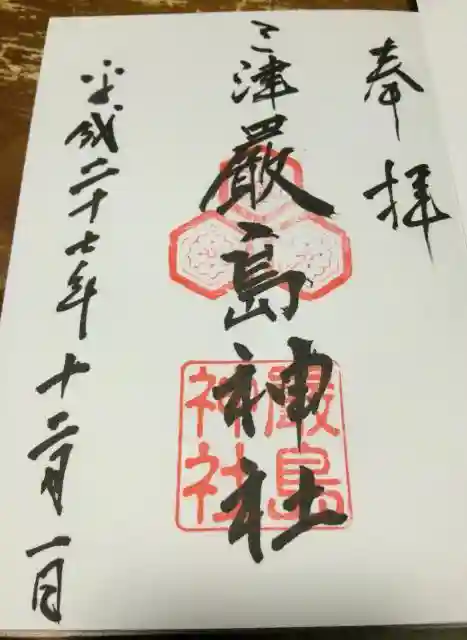 奉拝
三津厳島神社
厳島
神社
平成二十七年十二月一日